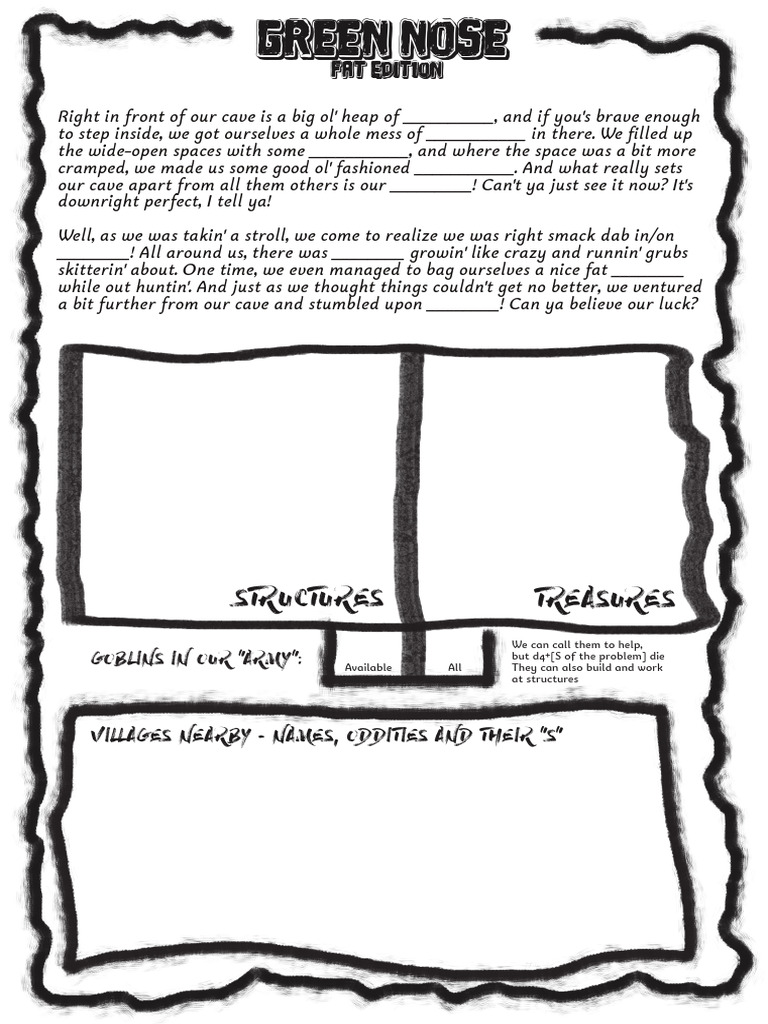 GREEN NOSE
FAT EDITION
Right in front of our cave is a big ol' heap of __________, and if you's brave enough
to step inside, we got ourselves a whole mess of ___________ in there. We filled up
the wide-open spaces with some ___________, and where the space was a bit more
cramped, we made us some good ol' fashioned ___________. And what really sets
our cave apart from all them others is our _________! Can't ya just see it now? It's
downright perfect, I tell ya!
Well, as we was takin' a stroll, we come to realize we was right smack dab in/on
________! All around us, there was ________ growin' like crazy and runnin' grubs
skitterin' about. One time, we even managed to bag ourselves a nice fat ________
while out huntin'. And just as we thought things couldn't get no better, we ventured
a bit further from our cave and stumbled upon ________! Can ya believe our luck?
STRUCTURES
TREASURES
GOBLINS IN OUR "ARMY":
Available
All
We can call them to help,
but d4+[S of the problem] die
They can also build and work
at structures
VILLAGES NEARBY - NAMES, ODDITIES AND THEIR "S"